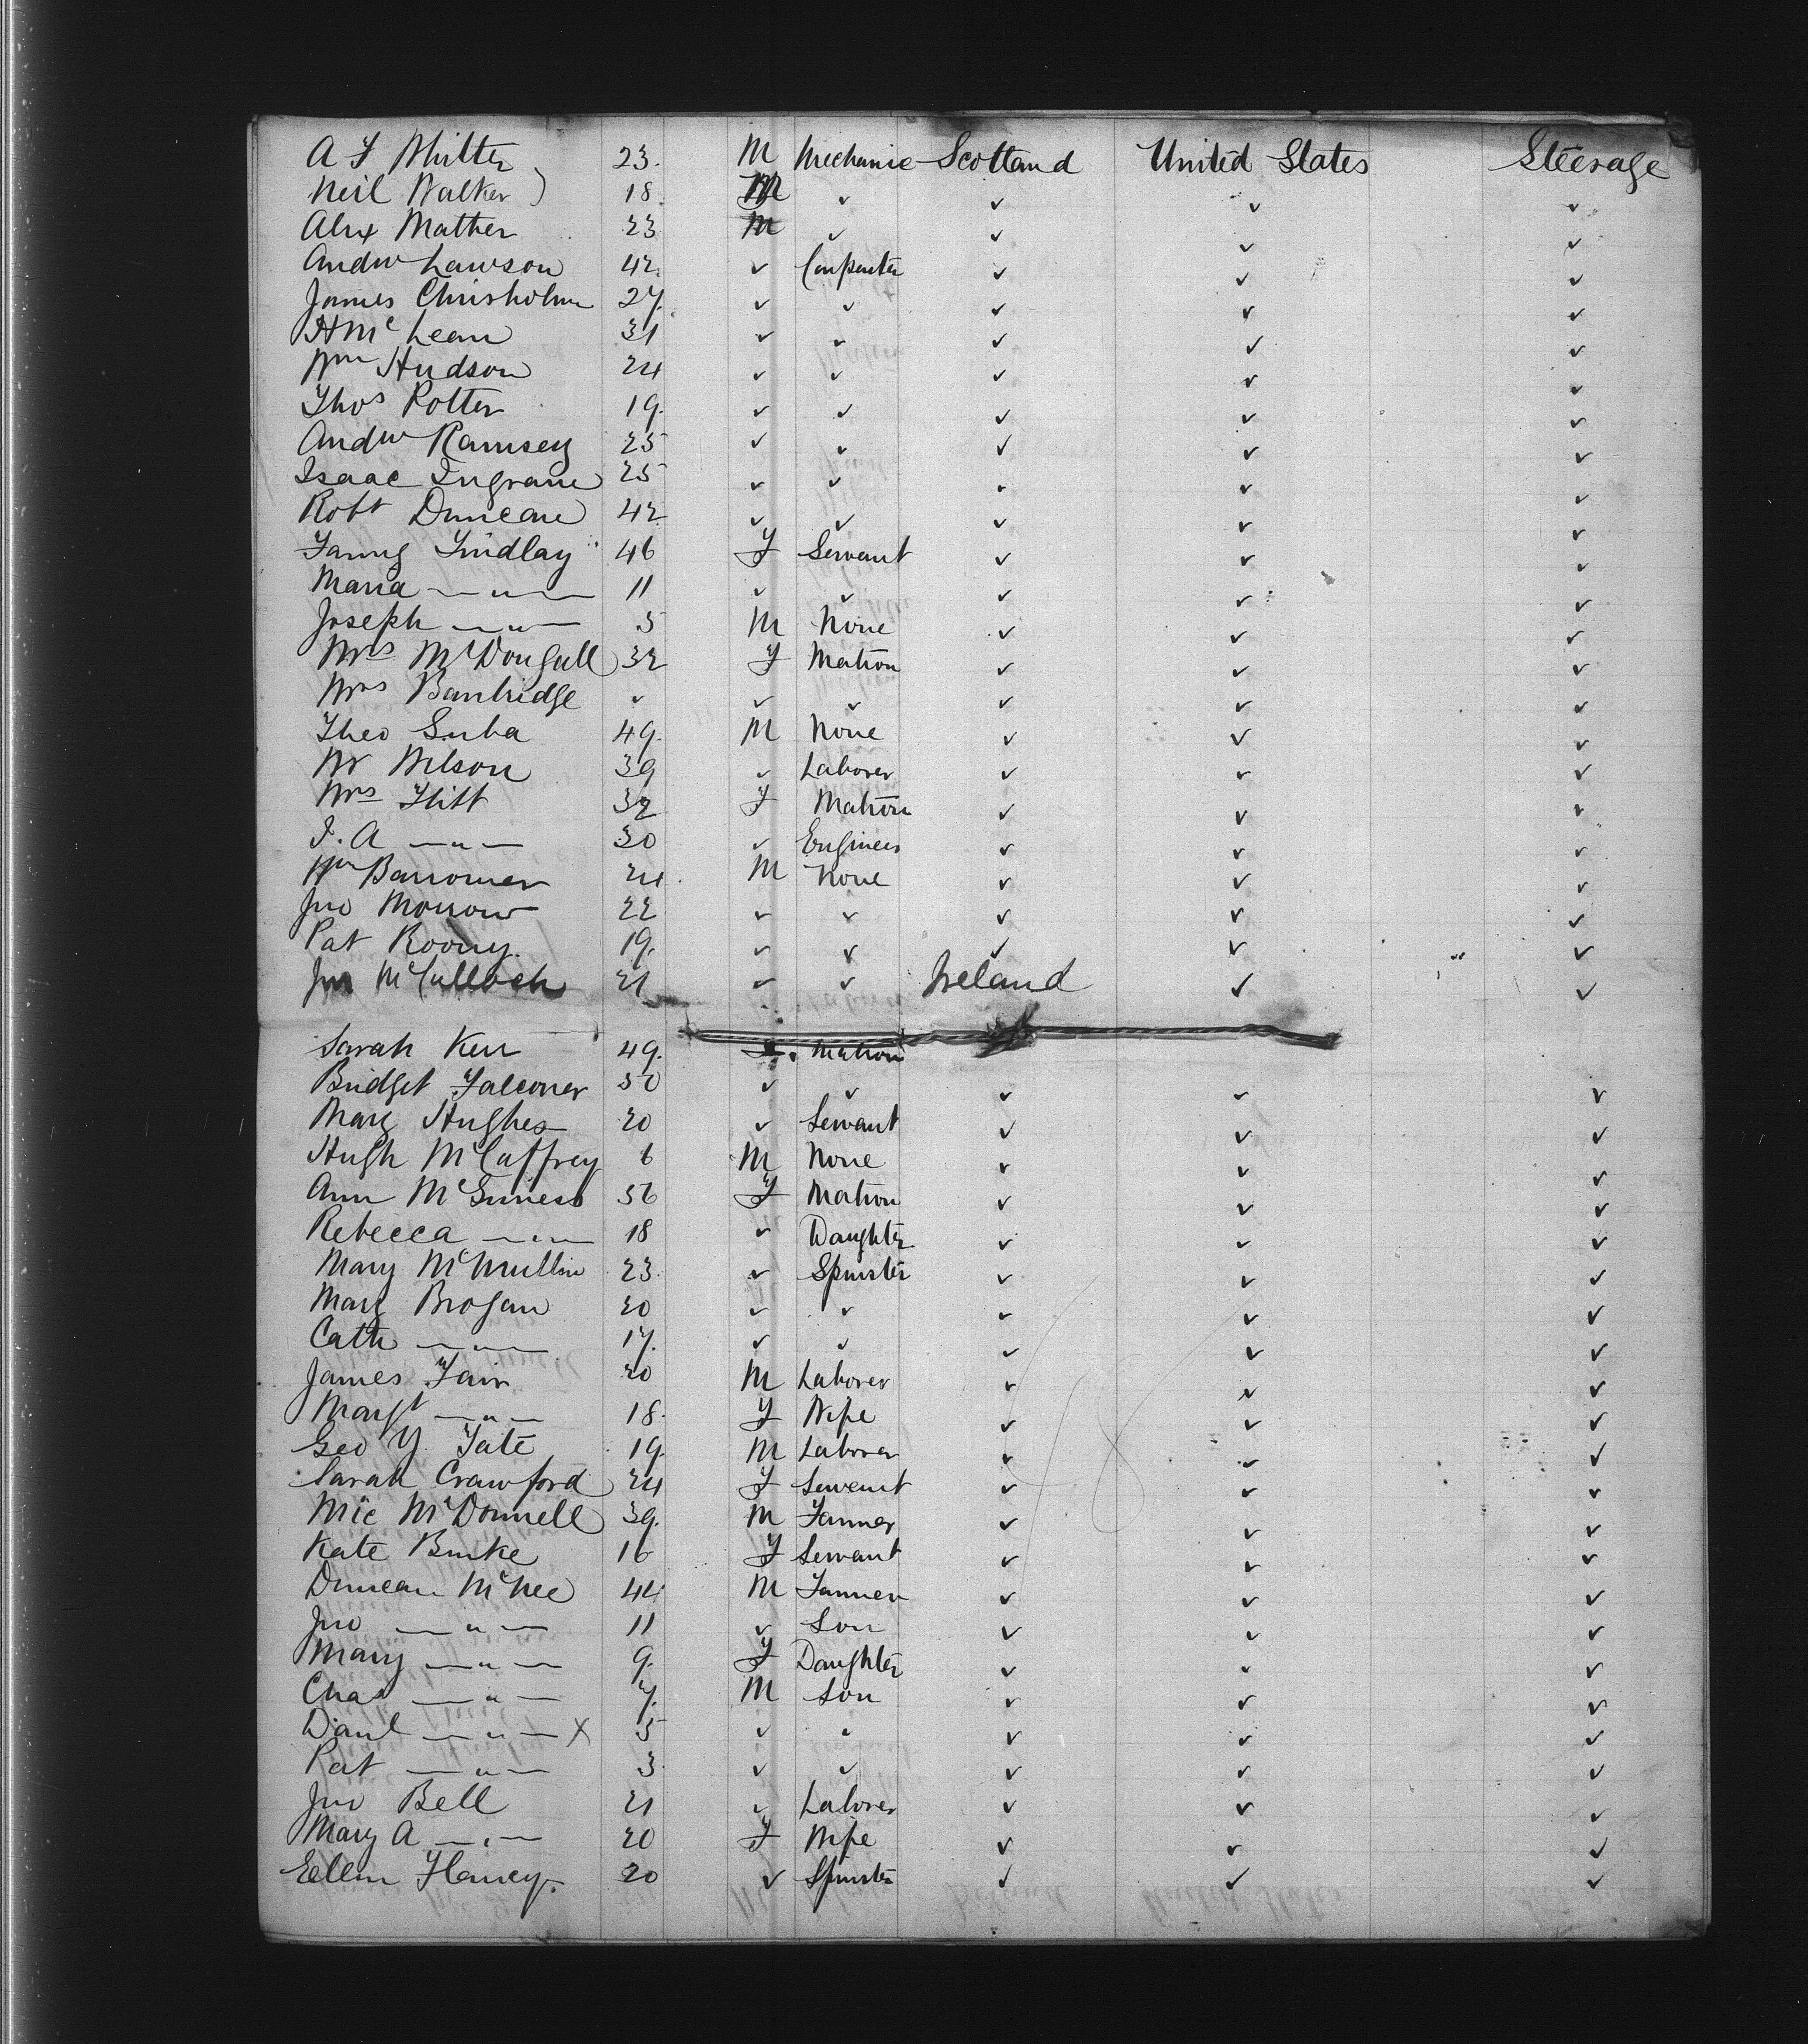 A F Whitter 23. M Mechanic Scotland United States Steerage
Neil Walker ) 18. M ✓ ✓ ✓ ✓
Alex Mather 23 M ✓ ✓ ✓ ✓
Andw Lawson 42. ✓ Carpenter ✓ ✓ ✓
James Chrisholm 27. ✓ ✓ ✓ ✓ ✓
H McLean 31 ✓ ✓ ✓ ✓ ✓
Wm Hudson 24 ✓ ✓ ✓ ✓ ✓
Thos Potter 19. ✓ ✓ ✓ ✓ ✓
Andw Ramsey 25 ✓ ✓ ✓ ✓ ✓
Isaac Ingram 25 ✓ ✓ ✓ ✓ ✓
Robt Duncan 42 ✓ ✓ ✓ ✓ ✓
Fanny Findlay 46 F Servant ✓ ✓ ✓
Maria — " — 11 ✓ ✓ ✓ ✓ ✓
Joseph — " — 5 M None ✓ ✓ ✓
Mrs McDougall 32 F Matron ✓ ✓ ✓
Mrs Banbridge ✓ ✓ ✓ ✓ ✓ ✓
Theo Suba 49. M None ✓ ✓ ✓
W Wilson 39 ✓ Laborer ✓ ✓ ✓
Mrs Flitt 32 F Matron ✓ ✓ ✓
J. A — " — 30 ✓ Engineer ✓ ✓ ✓
Wm Barrowman 24. M None ✓ ✓ ✓
Jno Morrow 22 ✓ ✓ ✓ ✓ ✓
Pat Roony. 19. ✓ ✓ ✓ ✓ ✓
Jno McCulloch 21 ✓ ✓ Ireland ✓ ✓
Sarah Kerr 49. F. Matron
Bridget Falconer 50 ✓ ✓ ✓ ✓ ✓
Mary Hughes 20 ✓ Servant ✓ ✓ ✓
Hugh McCaffrey 6 M None ✓ ✓ ✓
Ann McGuiness 56 F Matron ✓ ✓ ✓
Rebecca — " — 18 ✓ Daughter ✓ ✓ ✓
Mary McMullin 23. ✓ Spinster ✓ ✓ ✓
Mary Brogan 20 ✓ ✓ ✓ ✓ ✓
Cath — " — 17. ✓ ✓ ✓ ✓ ✓
James Fair 20 M Laborer ✓ ✓ ✓
Margt — " — 18. F Wife ✓ ✓ ✓
Geo Y. Tate 19. M Laborer ✓ ✓ ✓
Sarah Crawford 24 F Servant ✓ ✓ ✓
Mic McDonnell 39. M Farmer ✓ ✓ ✓
Kate Burke 16 F Servant ✓ ✓ ✓
Duncan McNee 44 M Farmer ✓ ✓ ✓
Jno — " — 11 ✓ Son ✓ ✓ ✓
Mary — " — 9. F Daughter ✓ ✓ ✓
Chas — " — 7. M Son ✓ ✓ ✓
Danl — " — X 5 ✓ ✓ ✓ ✓ ✓
Pat — " — 3 ✓ ✓ ✓ ✓ ✓
Jno Bell 21 ✓ Laborer ✓ ✓ ✓
Mary A — " — 20 F Wife ✓ ✓ ✓
Eellen Flancy. 20 ✓ Spinster ✓ ✓ ✓